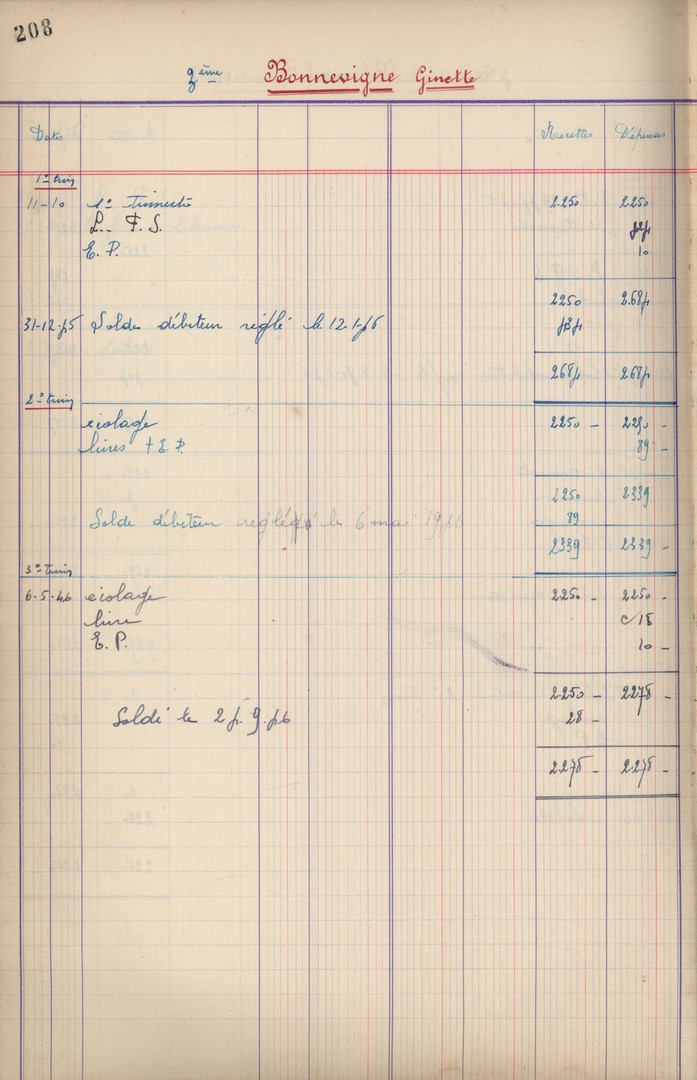 208
2ème Bonnevigne Ginette
Dates Recettes Dépenses
1er trim
11-10 1er trimestre 2.250 2.250
L. F. S. 424
E. P. 10
2250 2.684
31-12-45 Solde débiteur réglé le 12-1-46 434
2684 2684
2e trim
écolage 2250 - 2250 -
livres + E.P. 89 -
2250 2339
Solde débiteur réglé le 6 mai 1946 89
2339 2339 -
3e trim
6.5.46 écolage 2250 - 2250 -
livre 18
E. P. 10 -
2.250 - 2278 -
Soldé le 24.9.46 28 -
2.278 - 2.278 -